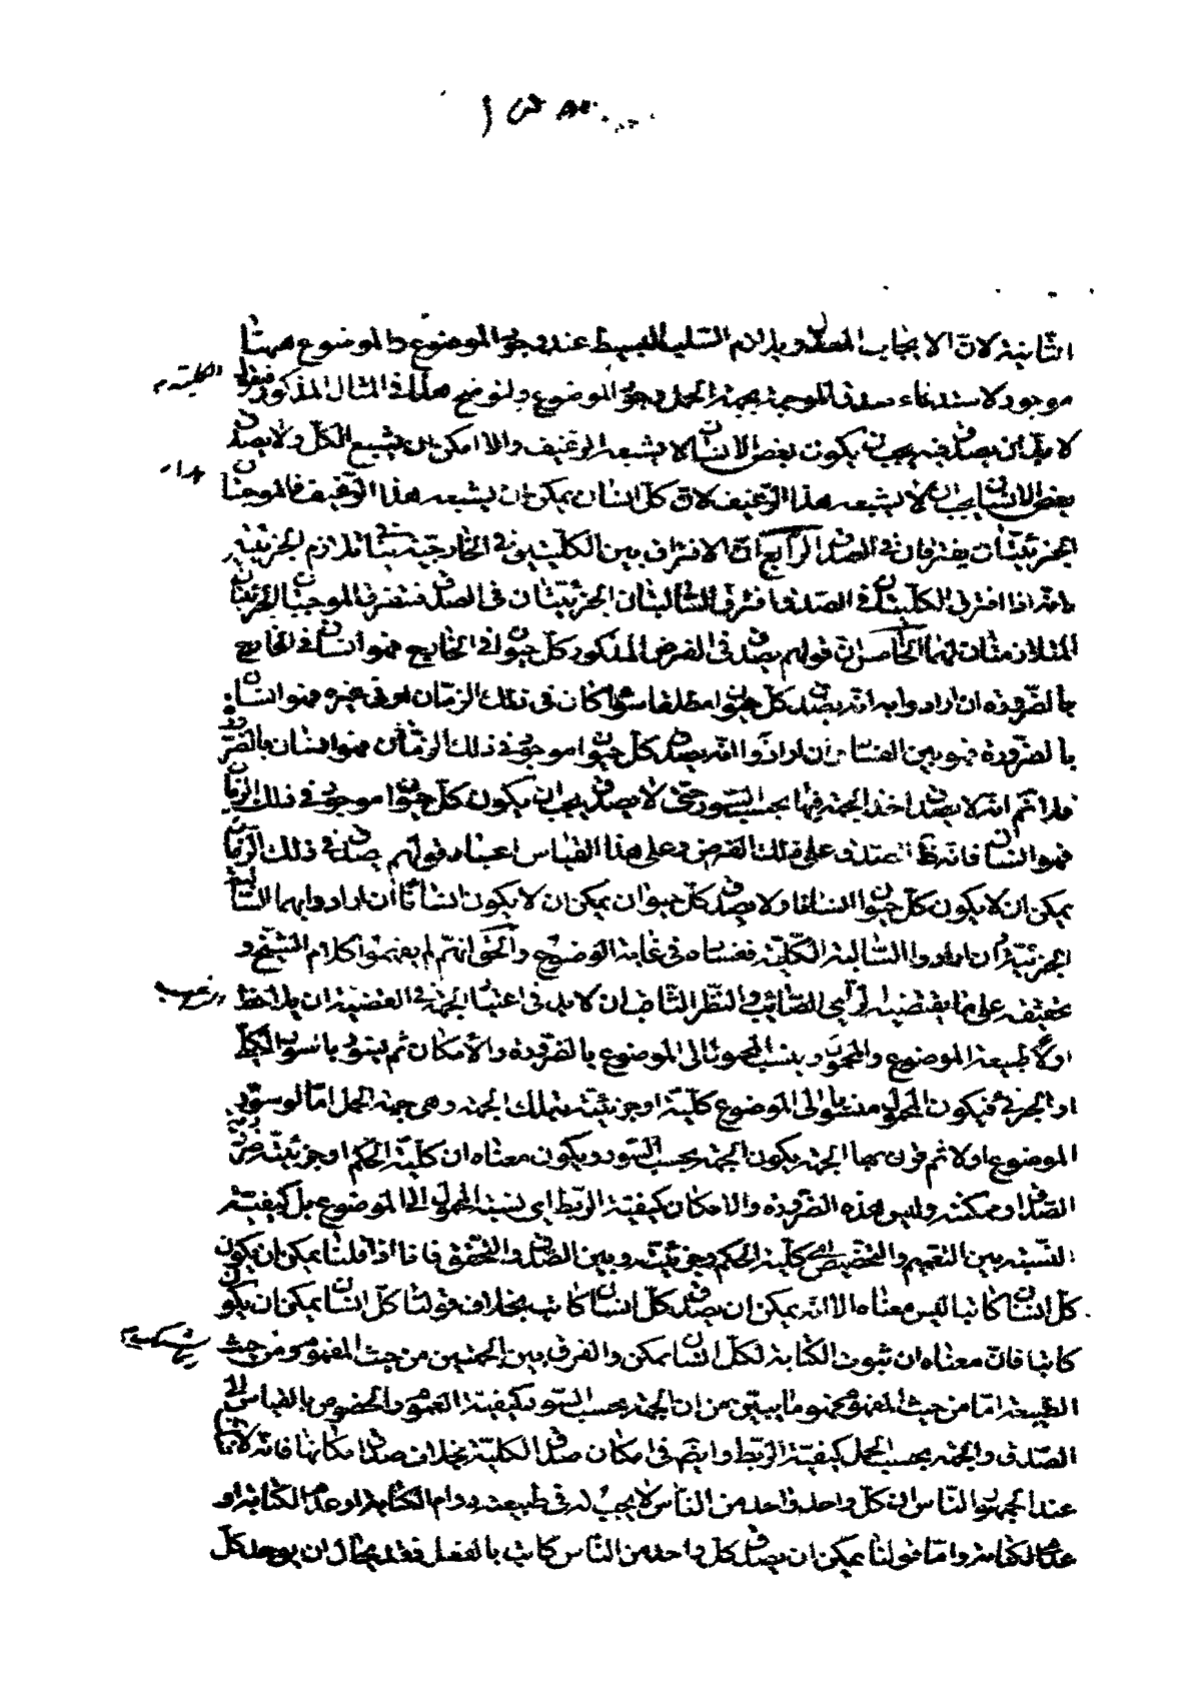 الثانية لان الايجاب المعدول يلازم السلب البسيط عند وجود الموضوع والموضوع ههنا
موجود لاستدعاء صدق الموجبة بجهة الحمل وجود الموضوع ولنوضح هذا في المثال المذكور فيقول
لا بد ان يصدق فيه يجب ان يكون بعض الانسان لا يشبعه الرغيف والا امكن ان يشبع الكل ولا يصدق
بعض الانسان يجب ان لا يشبعه هذا الرغيف لان كل انسان يمكن ان يشبعه هذا الرغيف فالموجبتان
الجزئيتان يفترقان في الصدق الرابع ان الافتراق بين الكليتين في الخارجية ينافي تلازم الجزئيتين
فانه اذا افترق الكليتان في الصدق افترق السالبتان الجزئيتان في الصدق فتفترق الموجبتان الجزئيتان
المتلازمتان لهما الخامس ان قولهم يصدق في الفرض المذكور كل حيوان في الخارج فهو انسان في الخارج
بالضرورة ان ارادوا به انه يصدق كل حيوان مطلقا سواء كان في ذلك الزمان او في غيره فهو انسان
بالضرورة فهو بين الفساد وان ارادوا انه يصدق كل حيوان موجود في ذلك الزمان فهو انسان بالضرورة
فلم انه لا يصدق اخذ الجهة فيها بحسب السور حتى لا يصدق يجب ان يكون كل حيوان موجود في ذلك الزمان
فهو انسان فانه ظاهر الصدق على ذلك الفرض وعلى هذا القياس اعتبار قولهم يصدق في ذلك الزمان
يمكن ان لا يكون كل حيوان انسانا ولا يصدق كل حيوان يمكن ان لا يكون انسانا ان ارادوا بهما السالبة
الجزئية وان ارادوا السالبة الكلية ففساده في غاية الوضوح والحق انهم لم يفهموا كلام الشيخ و
تحقيقه على ما يقتضيه الرأي الصائب والنظر الثاقب ان لا بد في اعتبار الجهة في القضية ان يلاحظ
اولا طبيعة الموضوع والمحمول وينسب المحمول الى الموضوع بالضرورة والامكان ثم يسور بالسور الكلي
او الجزئي فيكون المحمول منسوبا الى الموضوع كلية او جزئية بتلك الجهة وهي جهة الحمل اما لو سور
الموضوع اولا ثم قرن بها الجهة يكون الجهة بحسب السور ويكون معناه ان كلية الحكم او جزئيته ضرورية
الصدق او ممكنة وليس هذه الضرورة والامكان كيفية الربط اي نسبة المحمول الى الموضوع بل كيفية
النسبة بين التعميم والتخصيص اي كلية الحكم وجزئيته وبين الصدق والتحقق فانا اذا قلنا يمكن ان يكون
كل انسان كاتبا ليس معناه الا انه يمكن ان يصدق كل انسان كاتب بخلاف قولنا كل انسان يمكن ان يكون
كاتبا فان معناه ان ثبوت الكتابة لكل انسان ممكن والفرق بين الجهتين من حيث المفهوم ومن حيث
الطبيعة اما من حيث المفهوم فهو ما يبين من ان الجهة بحسب السور كيفية العموم والخصوص بالقياس الى
الصدق والجهة بحسب الحمل كيفية الربط وايضا في امكان صدق الكلية بخلاف صدق امكانها فانه لا
عند الجمهور الناس ان كل واحد واحد من الناس لا يجب له في طبيعته دوام الكتابة او عدم الكتابة او
عدم الكتابة واما قولنا يمكن ان يصدق كل واحد من الناس كاتب بالفعل فقد يحال ان يوجد كل